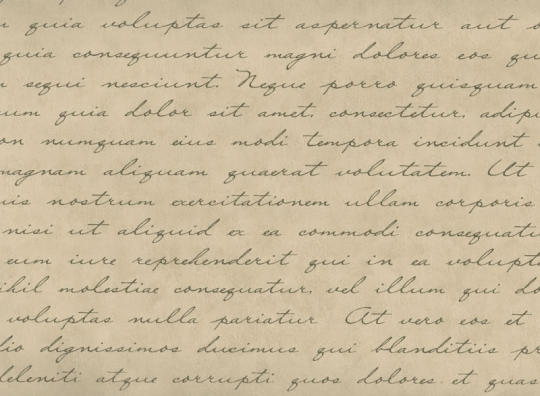 quia voluptas sit aspernatur aut
quia consequuntur magni dolores eos qu
sequi nesciunt. Neque porro quisquam
um quia dolor sit amet, consectetur, adipi
on numquam eius modi tempora incidunt
magnam aliquam quaerat volutatem. Ut
uis nostrum exercitationem ullam corporis
nisi ut aliquid ex ea commodi consequatu
eum iure reprehenderit qui in ea volupt
ihil molestiae consequatur, vel illum qui do
voluptas nulla pariatur At vero eos et
io dignissimos ducimus qui blanditiis pr
deleniti atque corrupti quos dolores et quas